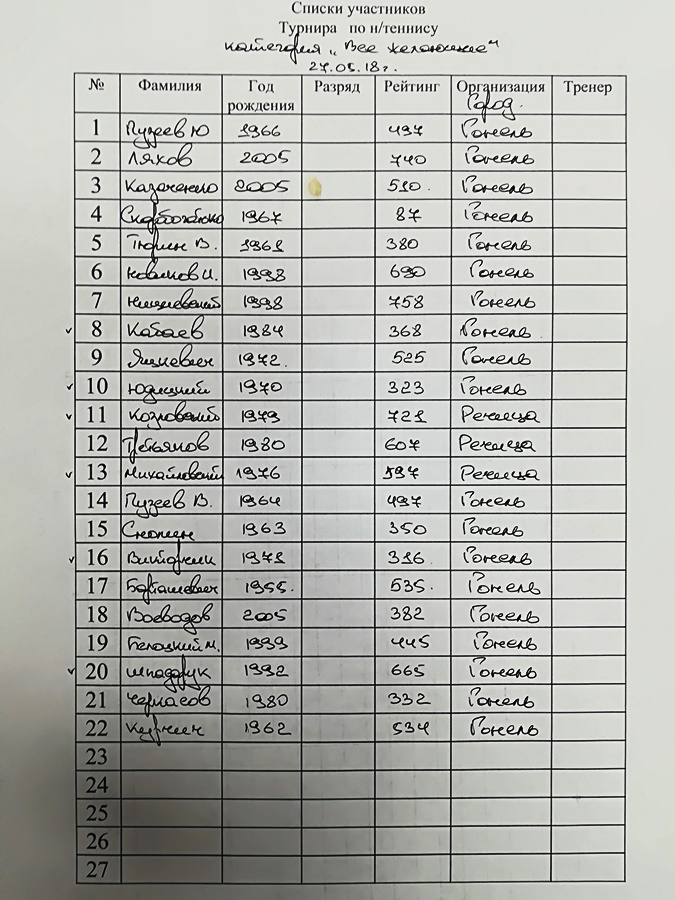 Списки участников
Турнира по н/теннису
категория „Все желающие"
27.05.18г.
№ Фамилия Год рождения Разряд Рейтинг Организация Тренер
Город.
1 Пузеев Ю 1966 497 Гомель
2 Ляхов 2005 740 Гомель
3 Казаченко 2005 510. Гомель
4 1967 87 Гомель
5 Тюрин В. 1961 380 Гомель
6 Новиков И. 1998 690 Гомель
7 1998 758 Гомель
8 Кабаев 1984 368 Гомель
9 Яцкевич 1972. 525 Гомель
10 Юдицкий 1970 323 Гомель
11 Козловский 1979 721 Речица
12 Третьяков 1980 607 Речица
13 Михайловский 1976 597 Речица
14 Пузеев В. 1964 497 Гомель
15 1963 350 Гомель
16 1971 316 Гомель
17 Барташевич 1955. 535. Гомель
18 Воеводов 2005 382 Гомель
19 Белоцкий м. 1999 445 Гомель
20 Шпадрук 1992 665 Гомель
21 Черпасов 1980 332 Гомель
22 1962 534 Гомель
23
24
25
26
27